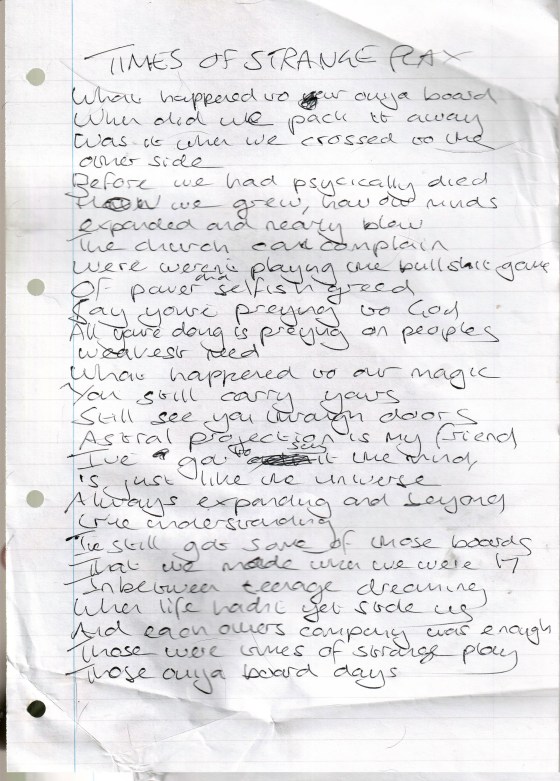 TIMES OF STRANGE PLAY
What happened to our ouija board
When did we pack it away
Was it when we crossed to the
other side
Before we had psycically died
How we grew, how our minds
expanded and nearly blew
The church can complain
Were weren't playing the bullshit game
Of power and selfish greed
Say you're preying to God
All you're doing is preying on peoples
weakest need
What happened to our magic
You still carry yours
Still see you through doors
Astral projection is my friend
I've got to say it the mind,
is just like the universe
Always expanding and beyond
true understanding
I've still got some of those boards
That we made when we were 17
Inbetween teenage dreaming
When life hadn't yet stole us
And each others company was enough
Those were times of strange play
Those ouija board days